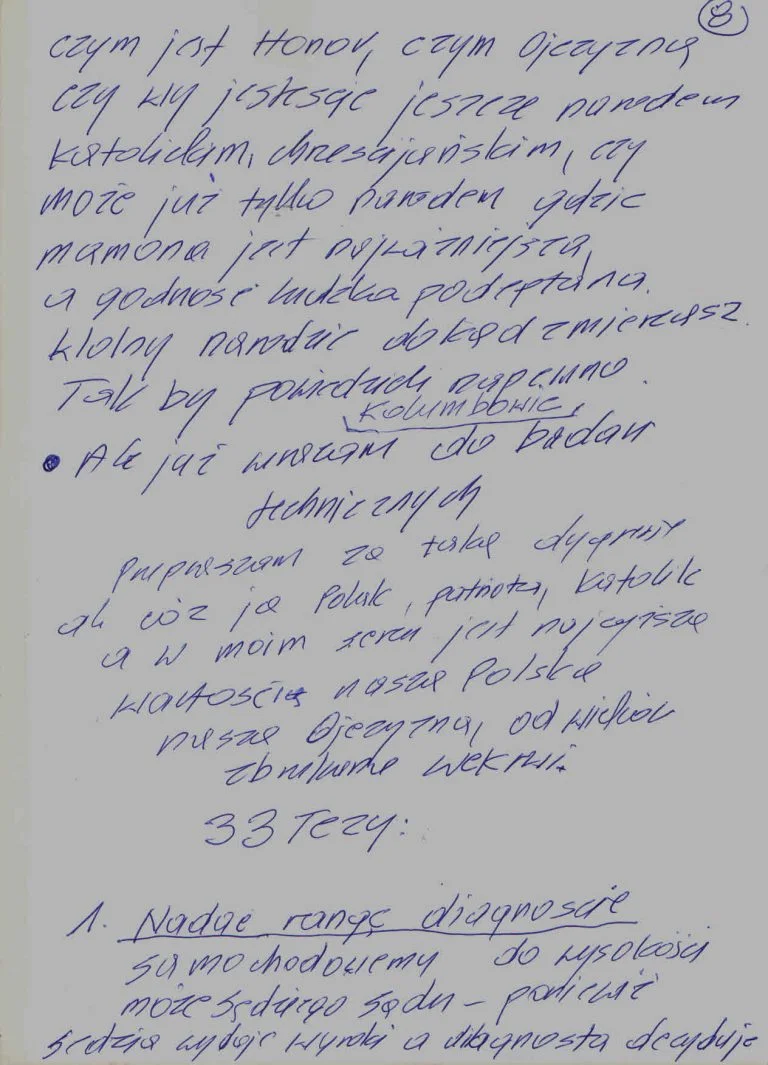 8
czym jest Honor, czym Ojczyzna
czy wy jesteście jeszcze narodem
katolickim, chrześcijańskim, czy
może już tylko narodem gdzie
mamona jest najważniejsza,
a godność ludzka podeptana.
Wolny narodzie dokąd zmierzasz.
Tak by powiedzieli zapewno
Kolumbowie,
• Ale już wracam do badań
technicznych
Przepraszam za taką dygresję
ale cóż ja Polak, patriota, katolik
a w moim sercu jest najwyższą
wartością nasza Polska
nasza Ojczyzna, od wieków
zbrukana we krwi.
33 Tezy:
1. Nadać rangę diagnoście
samochodowemy do wysokości
może sędziego sądu – ponieważ
sędzia wydaje wyroki a diagnosta decyduje